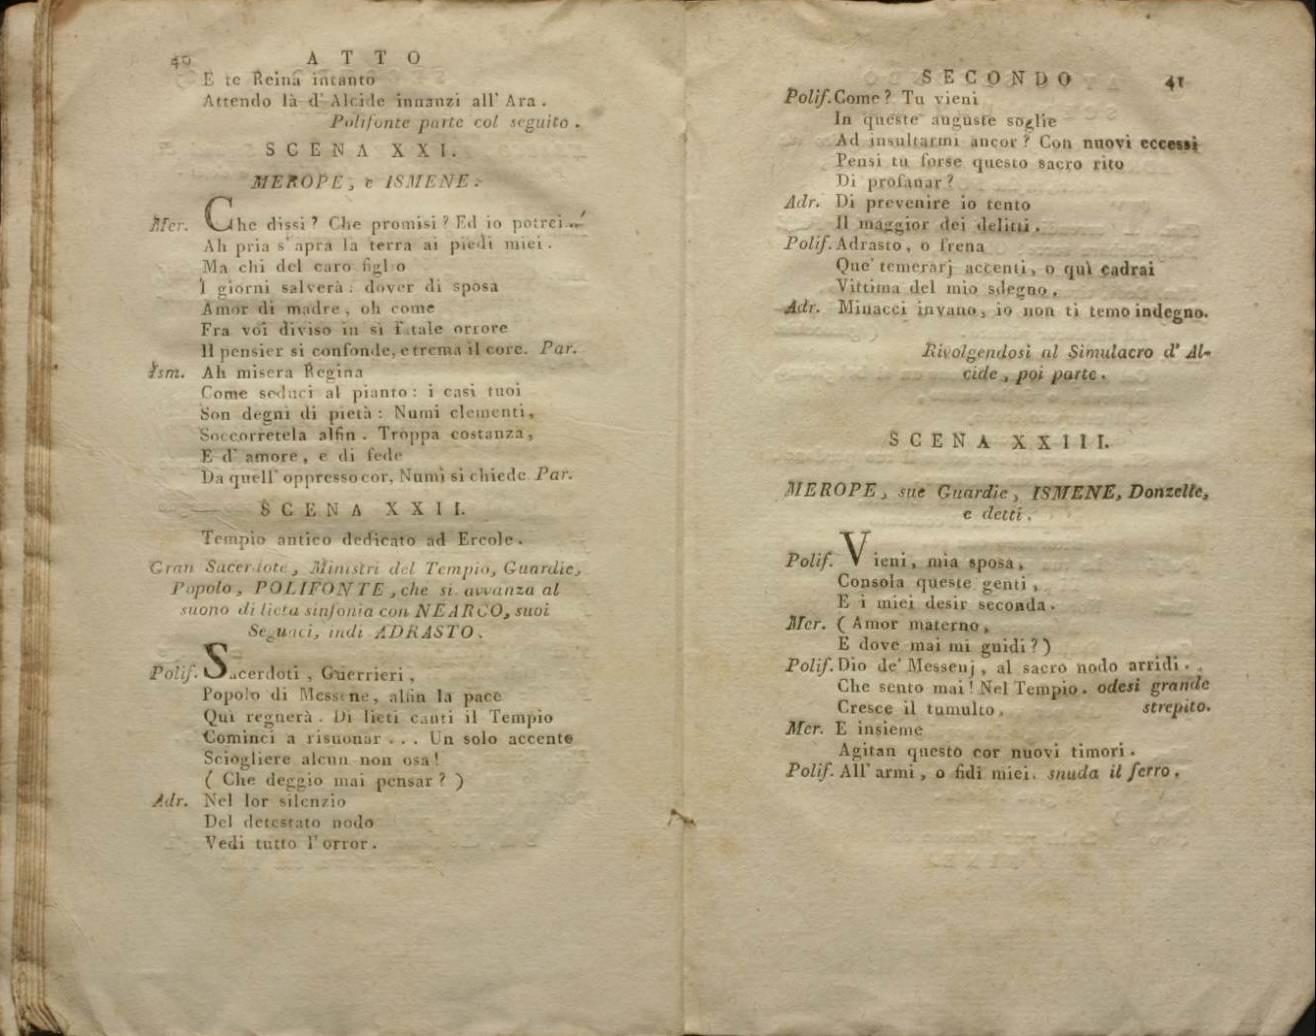 40 ATTO
E te Reina intanto
Attendo là d' Alcide innanzi all' Ara.
Polifonte parte col seguito.
SCENA XXI.
MEROPE, e ISMENE.
Mer. Che dissi? Che promisi? Ed io potrei...
Ah pria s' apra la terra ai piedi miei.
Ma chi del caro figlio
I giorni salverà: dover di sposa
Amor di madre, oh come
Fra voi diviso in sì fatale orrore
Il pensier si confonde, e trema il core. Par.
Ism. Ah misera Regina
Come seduci al pianto: i casi tuoi
Son degni di pietà: Numi clementi,
Soccorretela alfin. Troppa costanza,
E d' amore, e di fede
Da quell' oppresso cor, Numi si chiede. Par.
SCENA XXII.
Tempio antico dedicato ad Ercole.
Gran Sacerdote, Ministri del Tempio, Guardie,
Popolo, POLIFONTE, che si avvanza al
suono di lieta sinfonia con NEARCO, suoi
Seguaci, indi ADRASTO.
Polif. Sacerdoti, Guerrieri,
Popolo di Messene, alfin la pace
Qui regnerà. Di lieti canti il Tempio
Cominci a risuonar... Un solo accento
Sciogliere alcun non osa!
(Che deggio mai pensar?)
Adr. Nel lor silenzio
Del detestato nodo
Vedi tutto l' orror.
SECONDO 41
Polif. Come? Tu vieni
In queste auguste soglie
Ad insultarmi ancor? Con nuovi eccessi
Pensi tu forse questo sacro rito
Di profanar?
Adr. Di prevenire io tento
Il maggior dei delitti.
Polif. Adrasto, o frena
Que' temerarj accenti, o quì cadrai
Vittima del mio sdegno.
Adr. Minacci invano, io non ti temo indegno.
Rivolgendosi al Simulacro d' Al-
cide, poi parte.
SCENA XXIII.
MEROPE, sue Guardie, ISMENE, Donzelle,
e detti.
Polif. Vieni, mia sposa,
Consola queste genti,
E i miei desir seconda.
Mer. (Amor materno,
E dove mai mi guidi?)
Polif. Dio de' Messenj, al sacro nodo arridi.
Che sento mai! Nel Tempio. odesi grande
Cresce il tumulto. strepito.
Mer. E insieme
Agitan questo cor nuovi timori.
Polif. All' armi, o fidi miei. snuda il ferro.